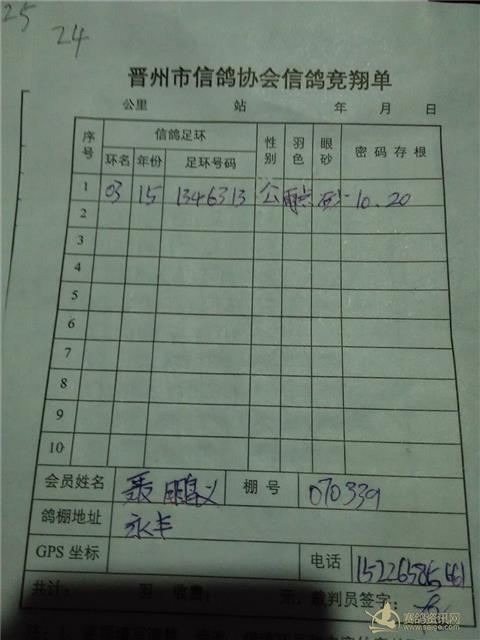 25
24
晋州市信鸽协会信鸽竞翔单
公里 站 年 月 日
序号 信鸽足环 性别 羽色 眼砂 密码存根
环名 年份 足环号码
1 03 15 1346313 公 雨点 砂 10.20
2
3
4
5
6
7
8
9
10
会员姓名 聂鹏义 棚号 070339
鸽棚地址 永丰
GPS 坐标 电话 15226585661
共计: 羽 收费: 元, 裁判员签字:
赛鸽资讯网
www.saige.com